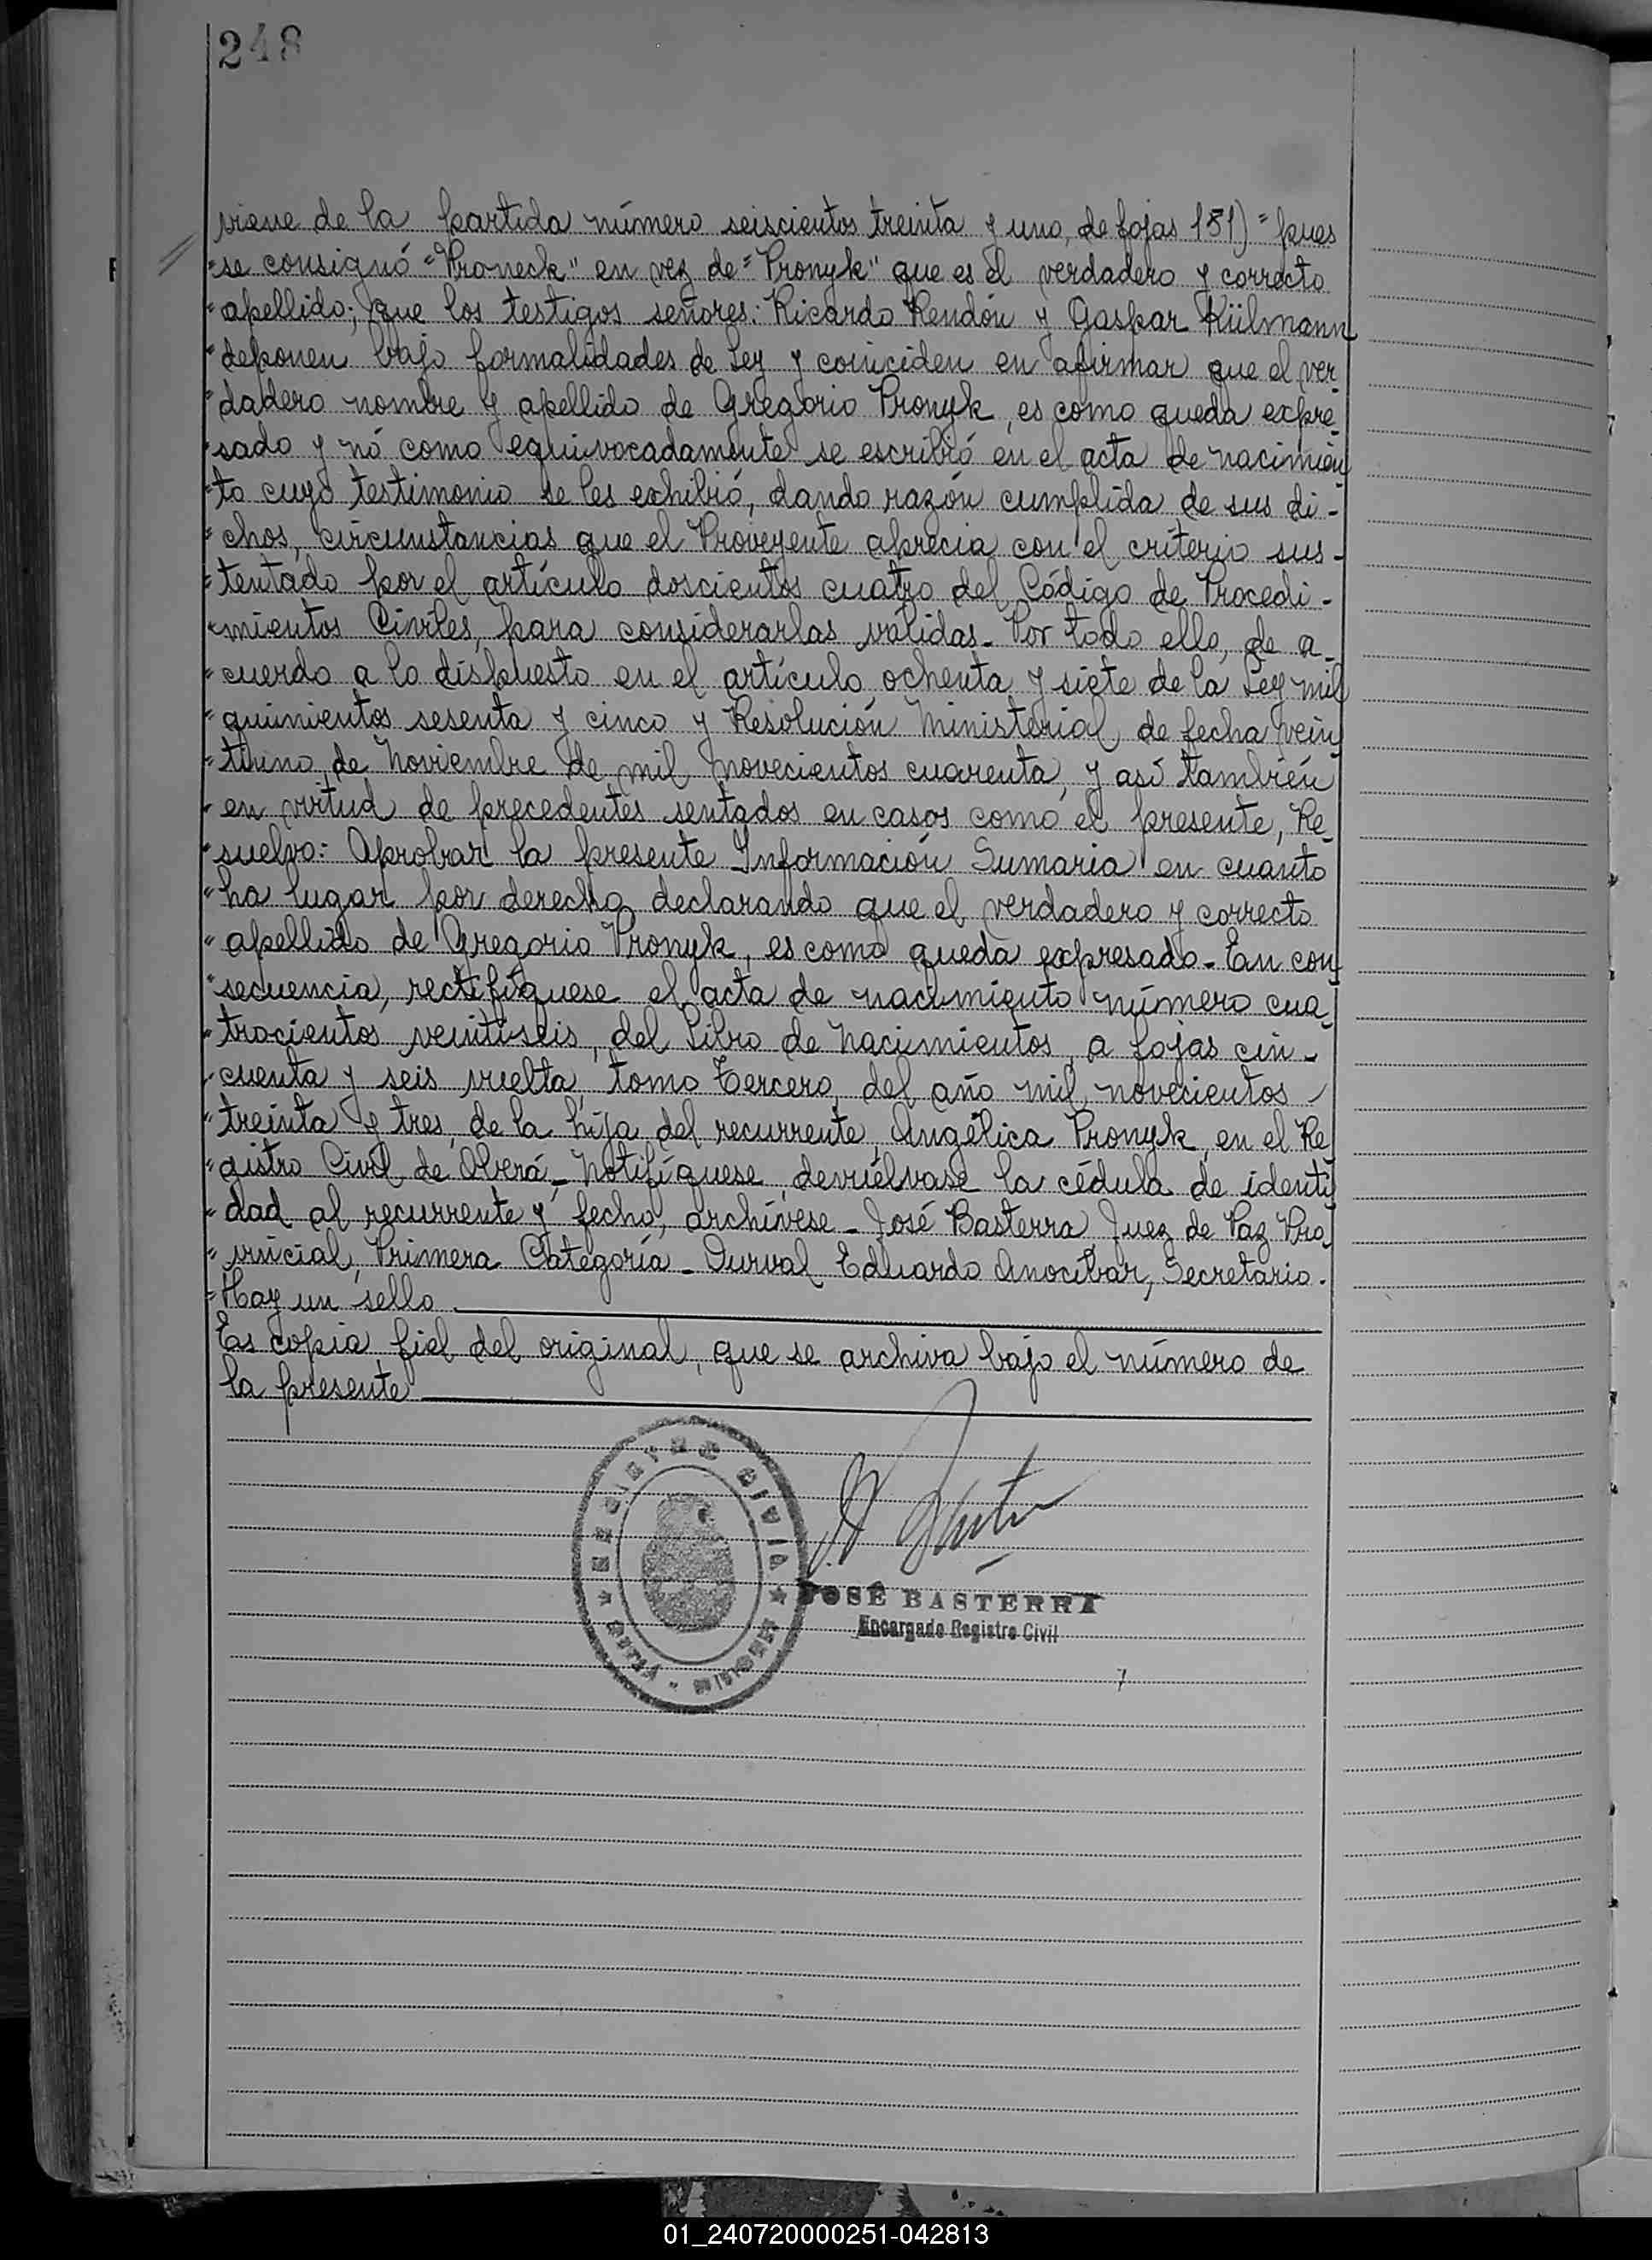 248
viene de la partida número seiscientos treinta y uno, de fojas 181) "pues
"se consignó "Proneck" en vez de "Pronyk" que es el verdadero y correcto
"apellido; que los testigos señores: Ricardo Rendón y Gaspar Külmann
"deponen bajo formalidades de Ley y coinciden en afirmar que el ver-
"dadero nombre y apellido de Gregorio Pronyk, es como queda expre-
"sado y nó como equivocadamente se escribió en el acta de nacimien
"to cuyo testimonio se les exhibió, dando razón cumplida de sus di-
"chos, circunstancias que el Proveyente aprecia con el criterio sus-
"tentado por el artículo doscientos cuatro del Código de Procedi-
"mientos Civiles, para considerarlas válidas. Por todo ello, de a-
"cuerdo a lo dispuesto en el artículo ochenta y siete de la Ley mil
"quinientos sesenta y cinco y Resolución Ministerial de fecha vein
"tiuno de Noviembre de mil novecientos cuarenta, y así también
"en virtud de precedentes sentados en casos como el presente, Re-
"suelvo: Aprobar la presente Información Sumaria en cuanto
"ha lugar por derecho declarando que el verdadero y correcto
"apellido de Gregorio Pronyk, es como queda expresado- En con
"secuencia, rectifíquese el acta de nacimiento número cua-
"trocientos veintiseis, del Libro de Nacimientos, a fojas cin-
"cuenta y seis vuelta, tomo Tercero, del año mil novecientos
"treinta y tres, de la hija del recurrente, Angélica Pronyk, en el Re
"gistro Civil de Oberá- Notifíquese, devuélvase la cédula de identi
"dad al recurrente y fecho, archívese- José Basterra Juez de Paz Pro
"vincial, Primera Categoría- Durval Eduardo Anocibar, Secretario.
"Hay un sello
Es copia fiel del original, que se archiva bajo el número de
la presente
REGISTRO CIVIL
MISIONES
JOSÉ BASTERRA
Encargado Registro Civil
01_240720000251-042813